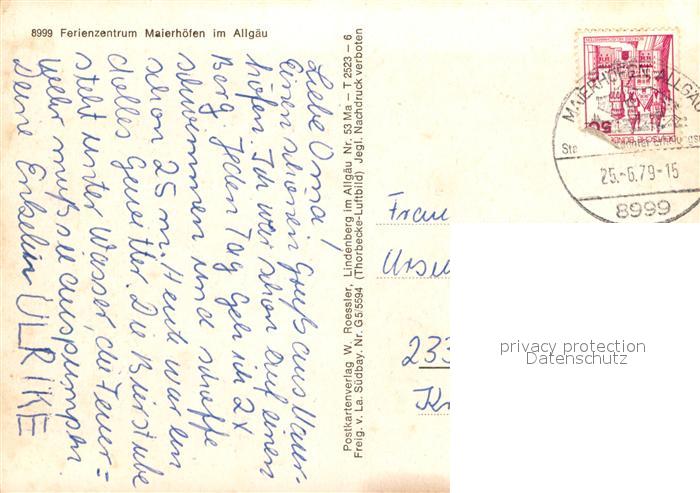 8999 Ferienzentrum Maierhöfen im Allgäu
Liebe Oma!
Einen schönen Gruß aus Maier-
höfen. Ich war schon auf einen
Berg. Jeden Tag geh ich 2x
schwimmen und schaffe
schon 25 m. Heute war ein
dolles Gewitter. Die Bierstube
steht unter Wasser, die Feuer-
wehr muß sie auspumpen.
Deine Enkelin ULRIKE
Postkartenverlag W. Roessler, Lindenberg im Allgäu Nr. 53 Ma – T 2523 – 6
Freig. v. La. Südbay. Nr. G 5/5594 (Thorbecke-Luftbild) Jegl. Nachdruck verboten
50
DEUTSCHE BUND
MAIERHÖFEN ALLGÄ
25.-6.79-15
8999
Frau
Ursu
233
K
privacy protection
Datenschutz